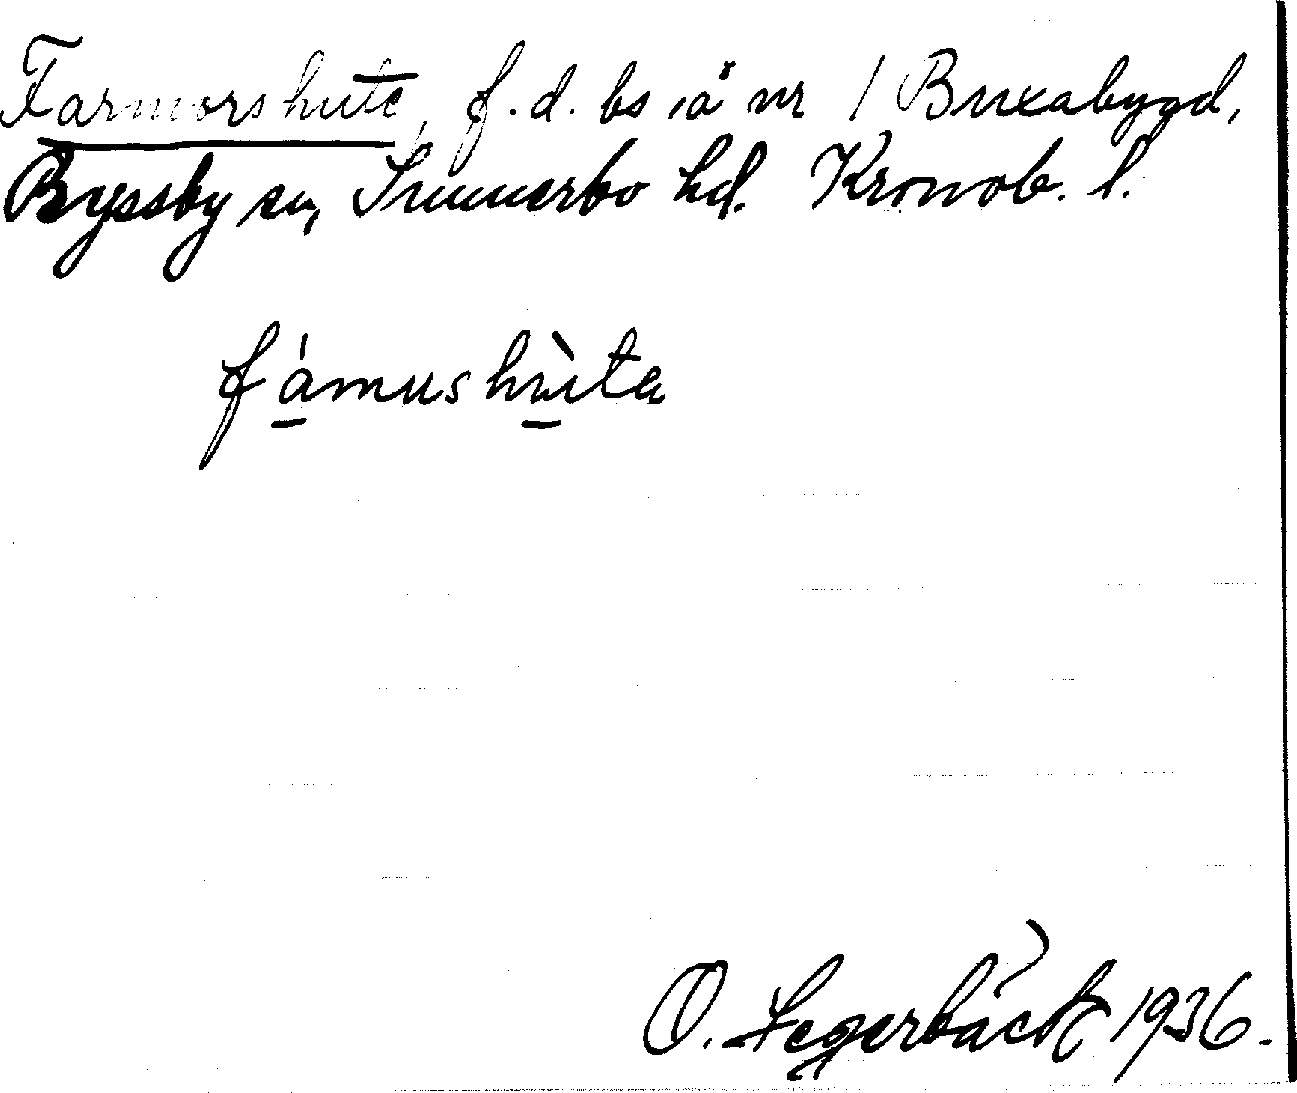 Farmorshute, f.d. bs å nr 1 Buxabygd,
Ryssby sn, Sunnerbo hd. Kronob. l.
fámushùta
O. Segerbäck 1936.